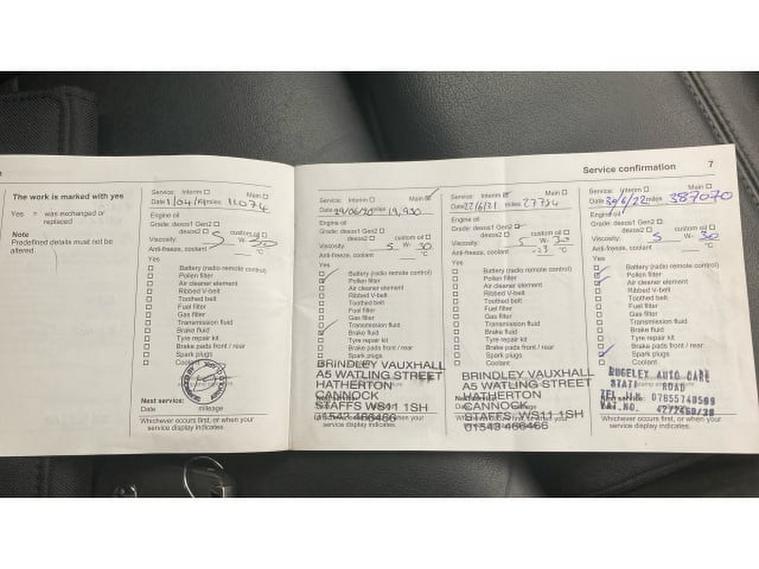 Service confirmation 7
The work is marked with yes
Yes = was exchanged or
replaced
Note
Predefined details must not be
altered.
Service: Interim Main
Date 1/04/19 miles 11074
Engine oil
Grade: dexos1 Gen2
dexos2 custom oil
Viscosity: 5 W- 30
Anti-freeze, coolant °C
Yes
Battery (radio remote control)
Pollen filter
Air cleaner element
Ribbed V-belt
Toothed belt
Fuel filter
Gas filter
Transmission fluid
Brake fluid
Tyre repair kit
Brake pads front / rear
Spark plugs
Coolant
Next service:
Date mileage
Whichever occurs first, or when your
service display indicates.
Service: Interim Main
Date 29/06/20 miles 19,930
Engine oil
Grade: dexos1 Gen2
dexos2 custom oil
Viscosity: 5 W- 30
Anti-freeze, coolant °C
Yes
Battery (radio remote control)
Pollen filter
Air cleaner element
Ribbed V-belt
Toothed belt
Fuel filter
Gas filter
Transmission fluid
Brake fluid
Tyre repair kit
Brake pads front / rear
Spark plugs
BRINDLEY VAUXHALL
A5 WATLING STREET
HATHERTON
CANNOCK
STAFFS WS11 1SH
01543 466466
Whichever occurs first, or when your
service display indicates.
Service: Interim Main
Date 22/6/21 miles 27784
Engine oil
Grade: dexos1 Gen2
dexos2 custom oil
Viscosity: 5 W- 30
Anti-freeze, coolant -23 °C
Yes
Battery (radio remote control)
Pollen filter
Air cleaner element
Ribbed V-belt
Toothed belt
Fuel filter
Gas filter
Transmission fluid
Brake fluid
Tyre repair kit
Brake pads front / rear
Spark plugs
Coolant
BRINDLEY VAUXHALL
A5 WATLING STREET
HATHERTON
CANNOCK
STAFFS. WS11 1SH
01543 466466
Whichever occurs first, or when your
service display indicates.
Service: Interim Main
Date 30/6/22 miles 387070
Engine oil
Grade: dexos1 Gen2
dexos2 custom oil
Viscosity: 5 W- 30
Anti-freeze, coolant °C
Yes
Battery (radio remote control)
Pollen filter
Air cleaner element
Ribbed V-belt
Toothed belt
Fuel filter
Gas filter
Transmission fluid
Brake fluid
Tyre repair kit
Brake pads front / rear
Spark plugs
Coolant
RUGELEY AUTO CARE
ROAD
Whichever occurs first, or when your
service display indicates.